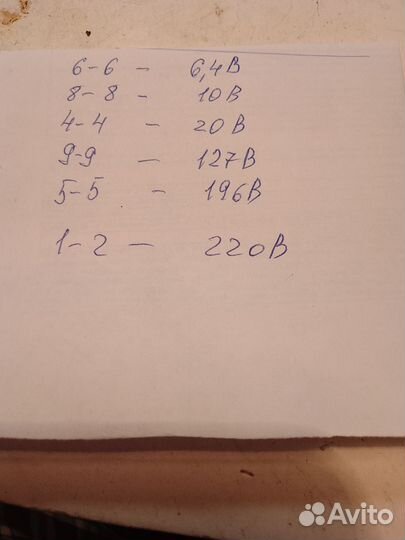 6-6 - 6,4В
8-8 - 10В
4-4 - 20В
9-9 - 127В
5-5 - 196В
1-2 - 220В
Avito